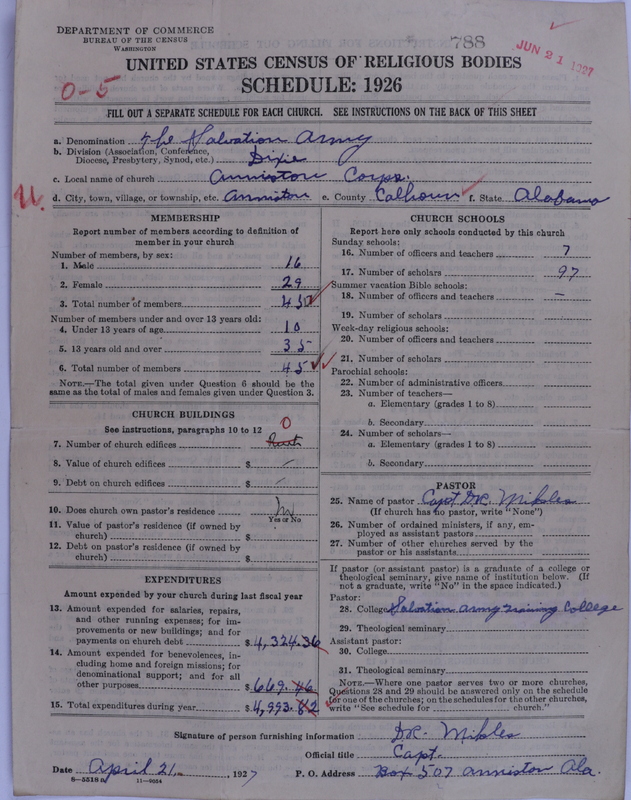 DEPARTMENT OF COMMERCE
BUREAU OF THE CENSUS
WASHINGTON
788
JUN 21 1927
UNITED STATES CENSUS OF RELIGIOUS BODIES
SCHEDULE: 1926
0-5
FILL OUT A SEPARATE SCHEDULE FOR EACH CHURCH. SEE INSTRUCTIONS ON THE BACK OF THIS SHEET
a. Denomination The Salvation Army
b. Division (Association, Conference, Diocese, Presbytery, Synod, etc.) Dixie
c. Local name of church Anniston Corps.
U. d. City, town, village, or township, etc. Anniston e. County Calhoun f. State Alabama
MEMBERSHIP
Report number of members according to definition of member in your church
Number of members, by sex:
1. Male 16
2. Female 29
3. Total number of members 45
Number of members under and over 13 years old:
4. Under 13 years of age 10
5. 13 years old and over 35
6. Total number of members 45
NOTE.—The total given under Question 6 should be the same as the total of males and females given under Question 3.
CHURCH BUILDINGS
See instructions, paragraphs 10 to 12
0
7. Number of church edifices
8. Value of church edifices $ -
9. Debt on church edifices $ -
10. Does church own pastor's residence No
Yes or No
11. Value of pastor's residence (if owned by church) $
12. Debt on pastor's residence (if owned by church) $
EXPENDITURES
Amount expended by your church during last fiscal year
13. Amount expended for salaries, repairs, and other running expenses; for improvements or new buildings; and for payments on church debt $ 4,324.36
14. Amount expended for benevolences, including home and foreign missions; for denominational support; and for all other purposes $ 669.46
15. Total expenditures during year $ 4,993.82
CHURCH SCHOOLS
Report here only schools conducted by this church
Sunday schools:
16. Number of officers and teachers 7
17. Number of scholars 97
Summer vacation Bible schools:
18. Number of officers and teachers —
19. Number of scholars
Week-day religious schools:
20. Number of officers and teachers
21. Number of scholars
Parochial schools:
22. Number of administrative officers
23. Number of teachers—
a. Elementary (grades 1 to 8)
b. Secondary
24. Number of scholars—
a. Elementary (grades 1 to 8)
b. Secondary
PASTOR
25. Name of pastor Capt D.R. Mikles
(If church has no pastor, write "None")
26. Number of ordained ministers, if any, employed as assistant pastors
27. Number of other churches served by the pastor or his assistants
If pastor (or assistant pastor) is a graduate of a college or theological seminary, give name of institution below. (If not a graduate, write "No" in the space indicated.)
Pastor:
28. College Salvation Army Training College
29. Theological seminary
Assistant pastor:
30. College
31. Theological seminary
NOTE.—Where one pastor serves two or more churches, Questions 28 and 29 should be answered only on the schedule for one of the churches; on the schedules for the other churches, write "See schedule for church."
Signature of person furnishing information D.R. Mikles
Official title Capt.
Date April 21 1927 P. O. Address Box 507 Anniston Ala.
8-5518 11-9054